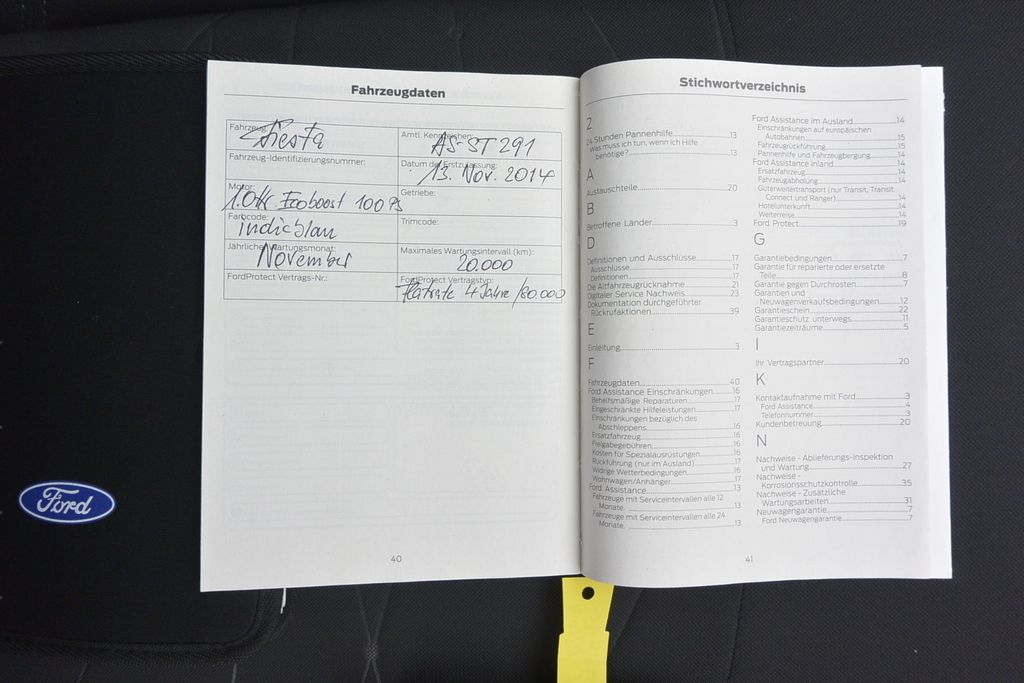 Fahrzeugdaten
Fahrzeug:
Fiesta
Amtl. Kennzeichen:
AS-ST 291
Fahrzeug-Identifizierungsnummer:
Datum der Erstzulassung:
13. Nov. 2014
Motor:
1.0 ltr. Ecoboost 100 PS
Getriebe:
Farbcode:
indicblau
Trimcode:
Jährlicher Wartungsmonat:
November
Maximales Wartungsintervall (km):
20.000
FordProtect Vertrags-Nr.:
FordProtect Vertragstyp:
Flatrate 4 Jahre /80.000
40
Stichwortverzeichnis
2
24 Stunden Pannenhilfe 13
Was muss ich tun, wenn ich Hilfe
benötige? 13
A
Austauschteile 20
B
Betroffene Länder 3
D
Definitionen und Ausschlüsse 17
Ausschlüsse 17
Definitionen 17
Die Altfahrzeugrücknahme 21
Digitaler Service Nachweis 23
Dokumentation durchgeführter
Rückrufaktionen 39
E
Einleitung 3
F
Fahrzeugdaten 40
Ford Assistance Einschränkungen 16
Behelfsmäßige Reparaturen 17
Eingeschränkte Hilfeleistungen 17
Einschränkungen bezüglich des
Abschleppens 16
Ersatzfahrzeug 16
Freigabegebühren 16
Kosten für Spezialausrüstungen 16
Rückführung (nur im Ausland) 17
Widrige Wetterbedingungen 16
Wohnwagen/Anhänger 17
Ford Assistance 13
Fahrzeuge mit Serviceintervallen alle 12
Monate. 13
Fahrzeuge mit Serviceintervallen alle 24
Monate. 13
Ford Assistance im Ausland 14
Einschränkungen auf europäischen
Autobahnen 15
Fahrzeugrückführung 15
Pannenhilfe und Fahrzeugbergung 14
Ford Assistance Inland 14
Ersatzfahrzeug 14
Fahrzeugabholung 14
Güterweitertransport (nur Transit, Transit
Connect und Ranger) 14
Hotelunterkunft 14
Weiterreise 14
Ford Protect 19
G
Garantiebedingungen 7
Garantie für reparierte oder ersetzte
Teile 8
Garantie gegen Durchrosten 7
Garantien und
Neuwagenverkaufsbedingungen 12
Garantieschein 22
Garantieschutz unterwegs 11
Garantiezeiträume 5
I
Ihr Vertragspartner 20
K
Kontaktaufnahme mit Ford 3
Ford Assistance 4
Telefonnummer 3
Kundenbetreuung 20
N
Nachweise - Ablieferungs-Inspektion
und Wartung 27
Nachweise -
Korrosionsschutzkontrolle 35
Nachweise - Zusätzliche
Wartungsarbeiten 31
Neuwagengarantie 7
Ford Neuwagengarantie 7
41
Ford